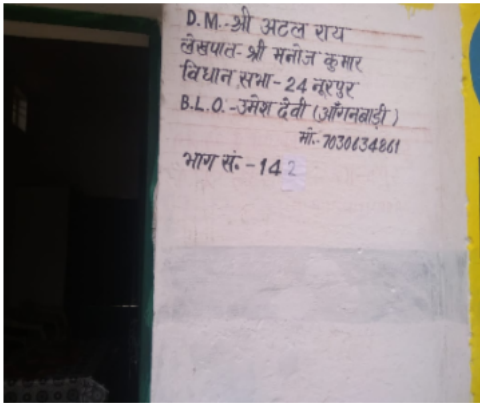 D.M.-श्री अटल राय
लेखपाल-श्री मनोज कुमार
विधान सभा-24 नूरपुर
B.L.O.-उमेश देवी (आँगनबाड़ी)
मो.-7030634861
भाग सं.-142